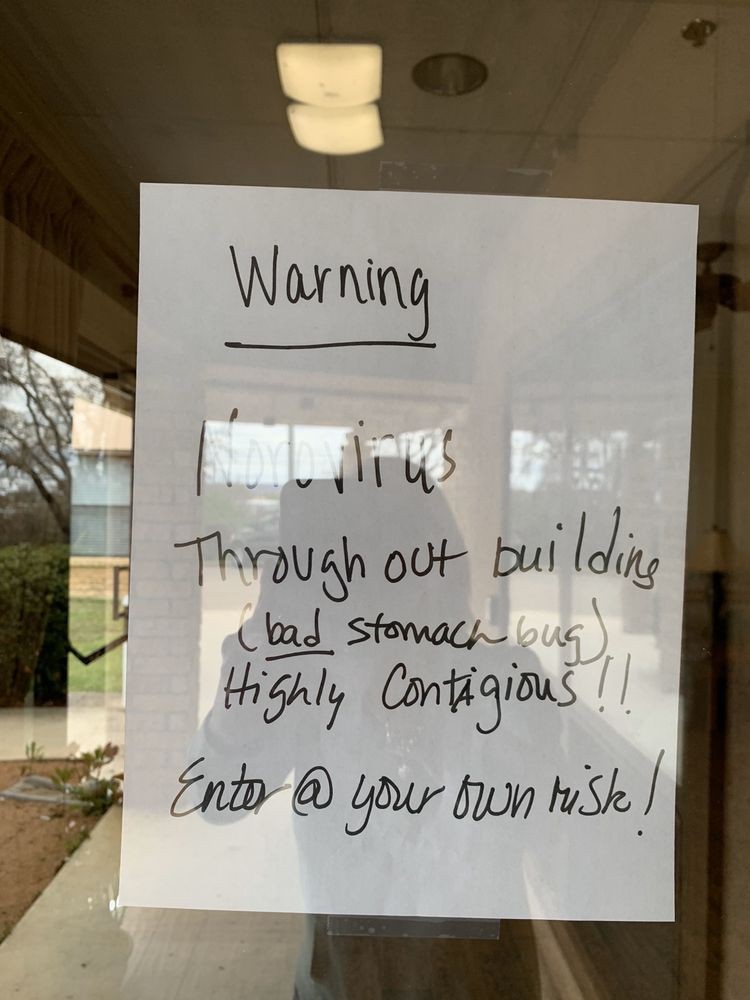 Warning
Norovirus
Through out building
(bad stomach bug)
Highly Contagious!!
Enter @ your own risk!